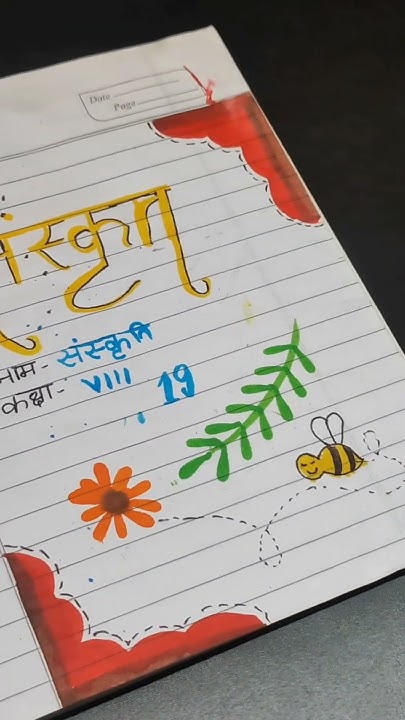 Date
Page
संस्कृत
नाम - संस्कृति
कक्षा - VIII 19